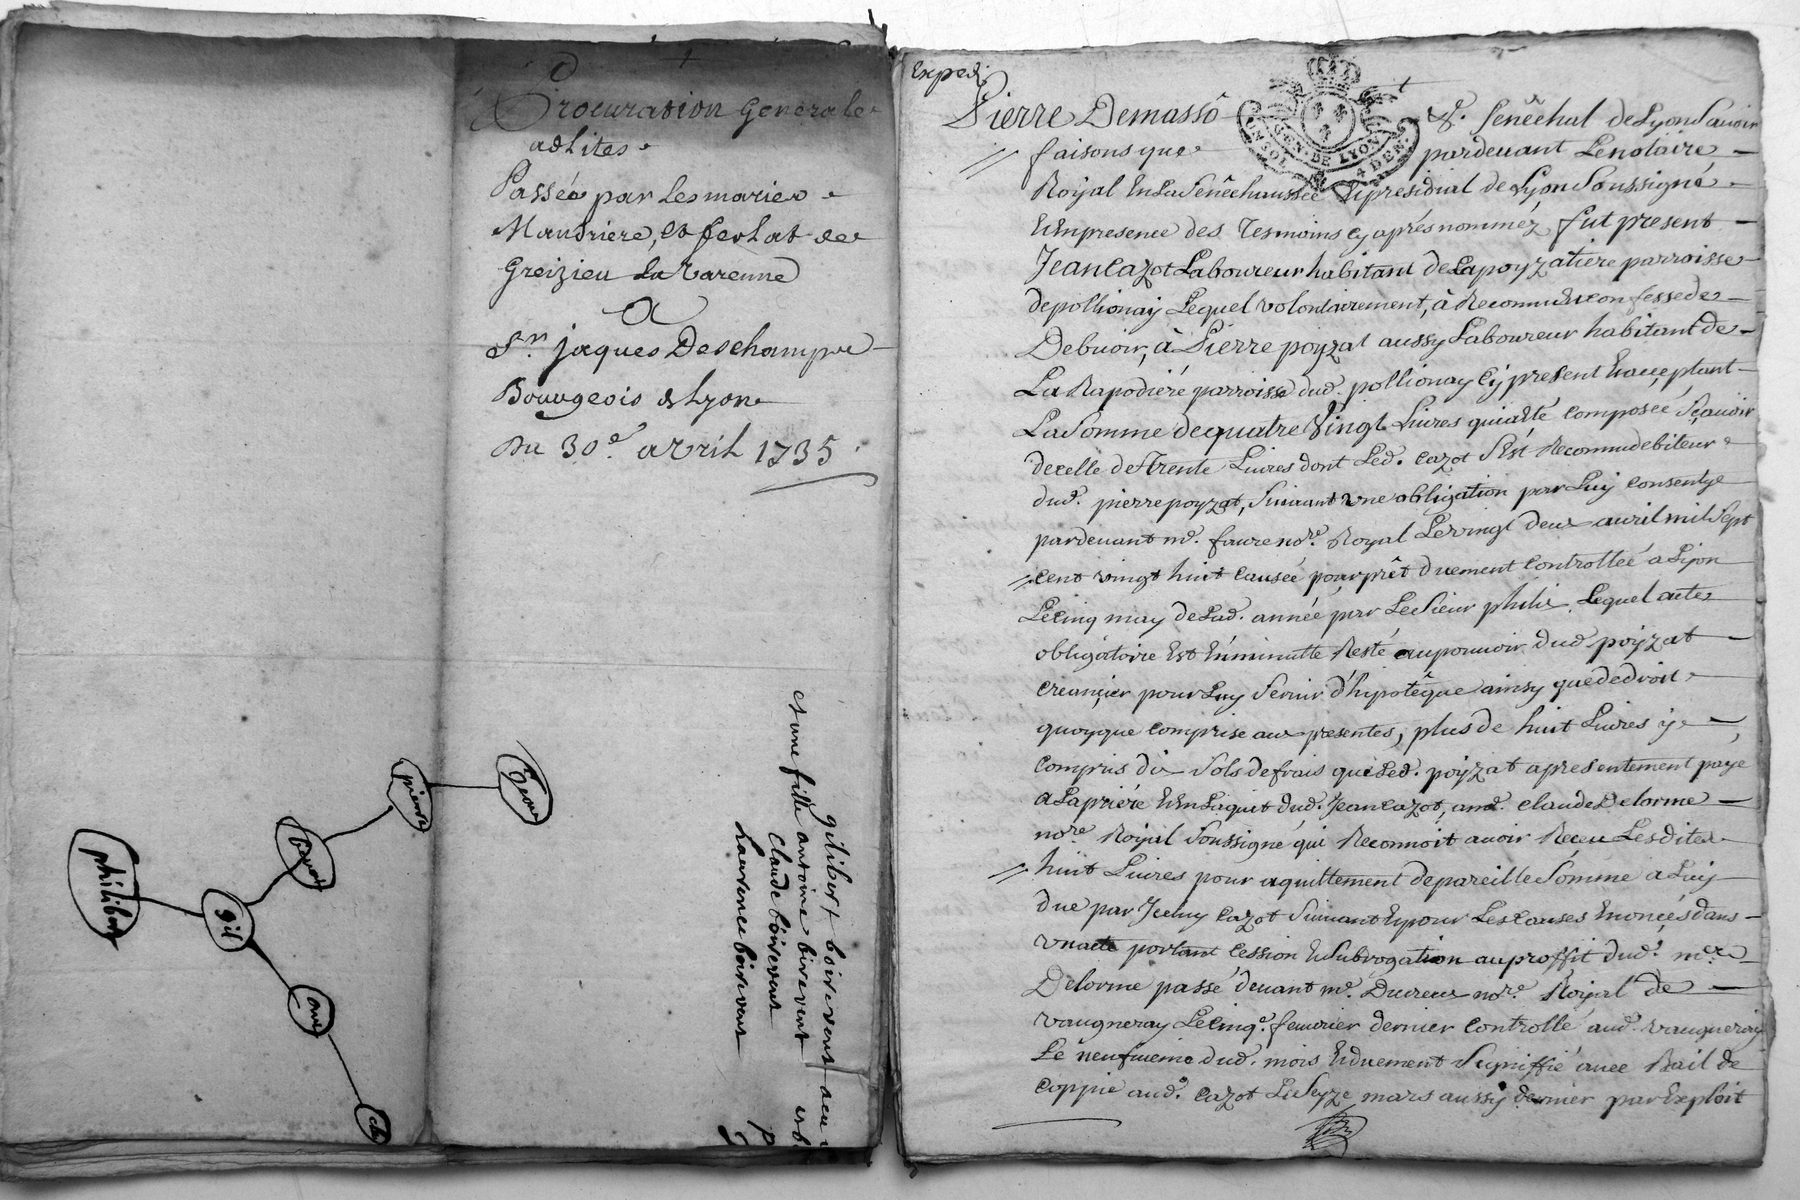 Procuration generale
adLites
Passée par Les mariex
Mandriere, et ferlat de
Greizieu La Varenne
A
Sr. jaques Deschamps
Bourgeois de Lyon
Du 30e. avril 1735
pierre
Jeane
philibert
gil
ane
gilibert boirevent
et une fille antoine birevent
claude boirevent
Laurence boirevent
Exped.
Pierre Demasso Sr. Senêchal de Lyon Savoir
faisons que pardevant Le notaire
SEN. DE LYON
Royal En La Senêchaussée & presidial de Lyon Soussigné
& En presence des Tesmoins cy aprés nommez fut present
Jean Cazot Laboureur habitant de La poyzatiere parroisse
de pollionay Lequel volontairement, à Reconnu & confesse de
Debvoir, à Pierre poyzat aussy Laboureur habitant de
La Rapodiére parroisse dud. pollionay cy present & acceptant
La Somme de quatre Vingt Livres qui a êté composée Sçavoir
de celle de Trente Livres dont Led. Cazot S'est Reconnu debiteur
dud. pierre poyzat, Suivant une obligation par Luy consentye
pardevant me. faure nore. Royal Le vingt deux avril mil Sept
cent vingt huit causée pour prêt duement controllée a Lyon
Le cinq may de Lad. année par Le Sieur philis Lequel acte
obligatoire Est En minutte Resté au pouvoir dud. poyzat
creançier pour Luy Servir d'hypotêque ainsy que de droit
quoyque comprise aux presentes, plus de huit Livres y
compris dix Sols de frais que Led. poyzat a presentement payé
a La priére & En L'aquit dud. Jean Cazot, a me. claude Delorme
nore. Royal Soussigné qui Reconnoit avoir Receu Lesdites
huit Livres pour aquittement de pareille Somme a Luy
due par Iceluy Cazot Suivant & pour Les causes Enoncées dans
un acte portant cession & Subrogation au proffit dud. me.
Delorme passé devant me. Ducreux nore. Royal de
vaugneray Le cinqe. fevrier dernier controllé aud. vaugneray
Le neufvieme dud. mois & duement Signiffié avec Bail de
coppie aud. Cazot Le Seyze mars aussy dernier par Exploit